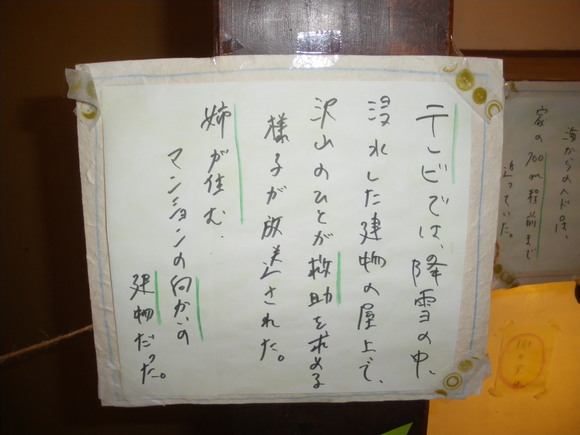 テレビでは、降雪の中、
浸水した建物の屋上で、
沢山のひとが救助を求める
様子が放送された。
姉が住む、
マンションの向かいの
建物だった。
海からのヘドロは、
家の700m程前まで
迫っていた。